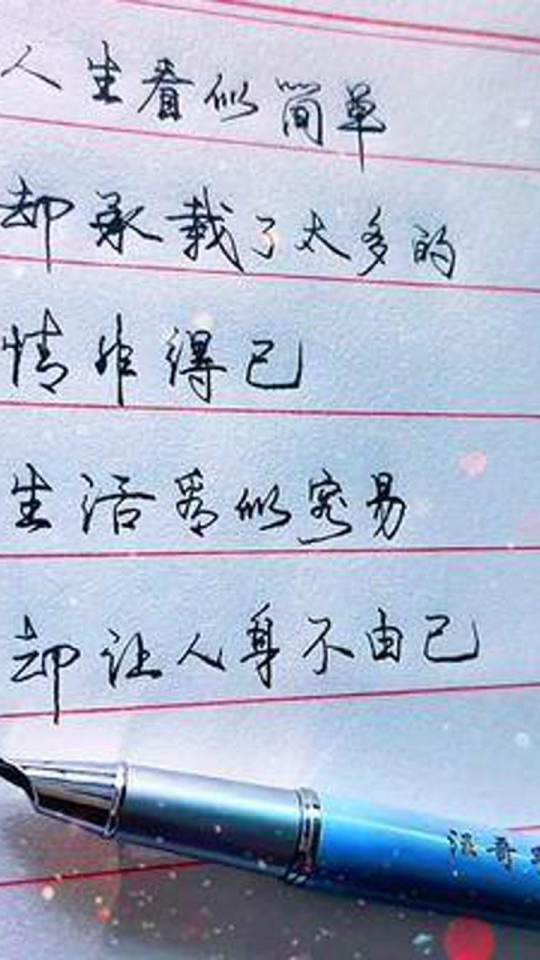 人生看似简单
却承载了太多的
情非得已
生活看似容易
却让人身不由己
哥